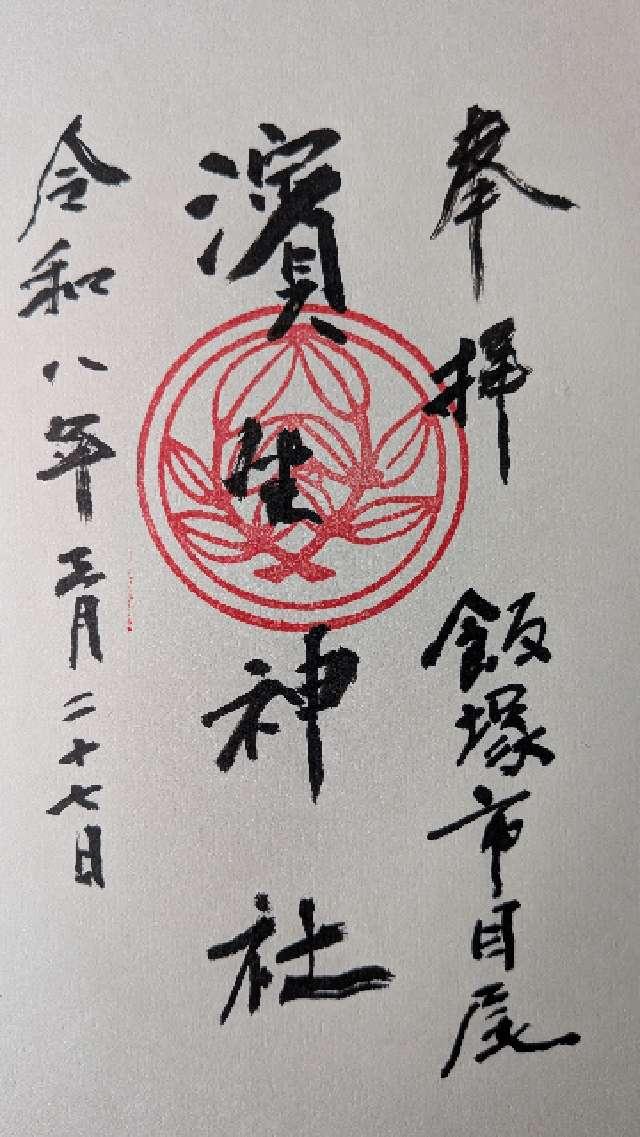 奉拝
飯塚市目尾
濱生神社
令和八年三月二十七日